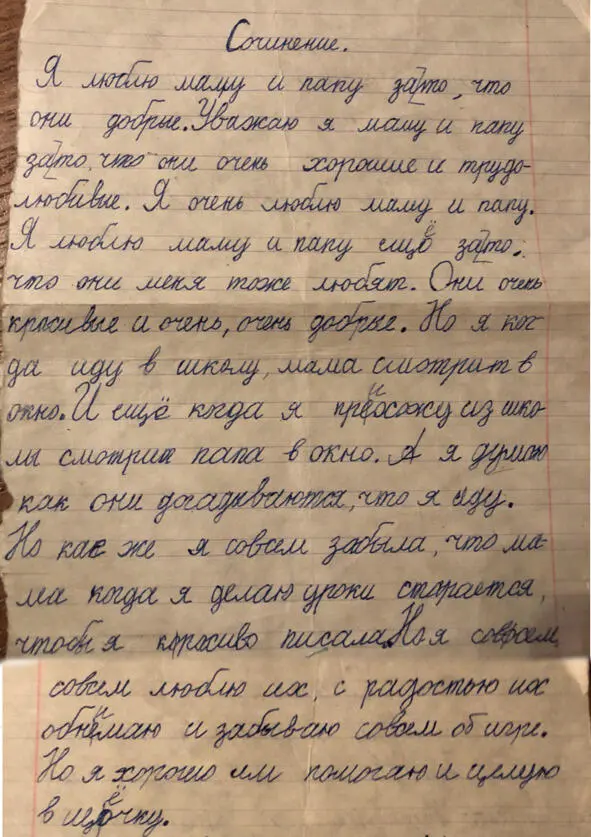 Сочинение.
Я люблю маму и папу за то, что
они добрые. Уважаю я маму и папу
за то, что они очень хорошие и трудо-
любивые. Я очень люблю маму и папу.
Я люблю маму и папу ещё за то,
что они меня тоже любят. Они очень
красивые и очень, очень добрые. Но я ког-
да иду в школу, мама смотрит в
окно. И ещё когда я прихожу из шко-
лы смотрит папа в окно. А я думаю
как они догадываются, что я иду.
Но как же я совсем забыла, что ма-
ма когда я делаю уроки старается,
чтобы я красиво писала. Но я совсем,
совсем люблю их, с радостью их
обнимаю и забываю совсем об игре.
Но я хорошо им помогаю и целую
в щёчку.